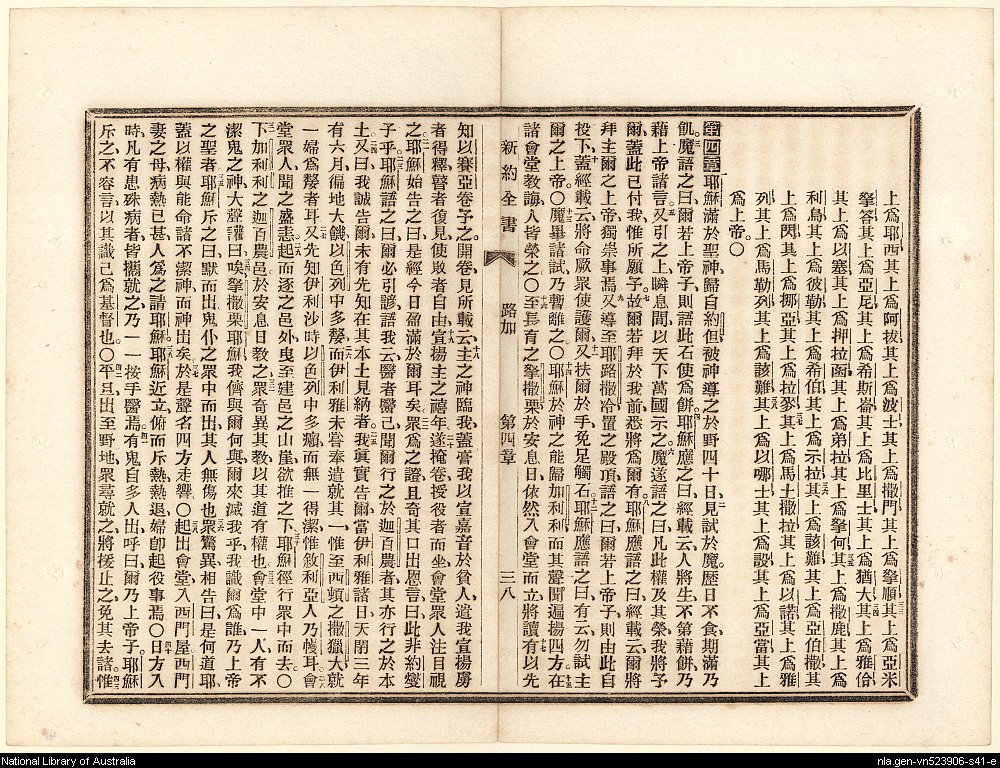 上爲耶西其上爲阿拔其上爲波士其上爲撒門其上爲拏順其上爲亞米
拏答其上爲亞尼其上爲希斯崙其上爲比里士其上爲猶大其上爲雅佮
其上爲以塞其上爲押拉函其上爲弟拉其上爲拏何其上爲撒鹿其上爲
利烏其上爲彼勒其上爲希伯其上爲示拉其上爲該難其上爲亞伯撒其
上爲閃其上爲挪亞其上爲拉麥其上爲馬土撒拉其上爲以諾其上爲雅
列其上爲馬勒列其上爲該難其上爲以哪士其上爲設其上爲亞當其上
爲上帝○
第四章 耶穌滿於聖神歸自約但被神導之於野四十日見試於魔歷日不食期滿乃
飢魔語之曰爾若上帝子則語此石使爲餅耶穌應之曰經載云人將生不第藉餅乃
藉上帝諸言又引之上瞬息間以天下萬國示之魔遂語之曰凡此權及其榮我將予
爾蓋此已付我惟所願予故爾若拜於我前悉將爲爾有耶穌應語之曰經載云爾將
拜主爾之上帝獨崇事焉又導至耶路撒冷置之殿頂語之曰爾若上帝子則由此自
投下蓋經載云將命厥衆使護爾又扶爾於手免足觸石耶穌應語之曰有云勿試主
爾之上帝○魔畢諸試乃暫離之○耶穌於神之能歸加利利而其聲聞遍揚四方在
諸會堂教誨人皆榮之○至長有之拏撒栗於安息日依然入會堂而立將讀有以先
新約全書 路加 第四章 三八
知以賽亞卷予之開卷見所載云主之神臨我蓋膏我以宣嘉音於貧人遣我宣揚虜
者得釋瞽者復見使敗者自由宣揚主之禧年遂掩卷授役者而坐會堂衆人注目視
之耶穌始告之曰是經今日盈滿於爾耳矣衆爲之證且奇其口出恩言曰此非約燮
子乎耶穌語之曰爾必引諺語我云醫者醫己聞爾行之於迦百農者其亦行之於本
土又曰我誠告爾未有先知在其本土見納者我眞實告爾當伊利雅諸日天閉三年
有六月偏地大饑以色列中多嫠而伊利雅未嘗奉遣就其一惟至西頓之撒獵大就
一婦爲嫠者耳又先知伊利沙時以色列中多癩而無一得潔惟敘利亞人乃幔耳會
堂衆人聞之盛恚起而逐之邑外曳至建邑之山崖欲推之下耶穌徑行衆中而去○
下加利利之迦百農邑於安息日教之衆奇異其教以其道有權也會堂中一人有不
潔鬼之神大聲讙曰唉拏撒栗耶穌我儕與爾何與爾來滅我乎我識爾爲誰乃上帝
之聖者耶穌斥之曰默而出鬼仆之衆中而出其人無傷也衆驚異相告曰是何道耶
蓋以權與能命諸不潔神而神出矣於是聲名四方走響○起出會堂入西門屋西門
妻之母病熱已甚人爲之請耶穌耶穌近立俯而斥熱熱退婦卽起役事焉○日方入
時凡有患殊病者皆攜就之乃一一按手醫焉有鬼自多人出呼曰爾乃上帝子耶穌
斥之不容言以其識己爲基督也○平旦出至野地衆尋就之將援止之免其去諸惟
National Library of Australia
nla.gen-vn523906-s41-e